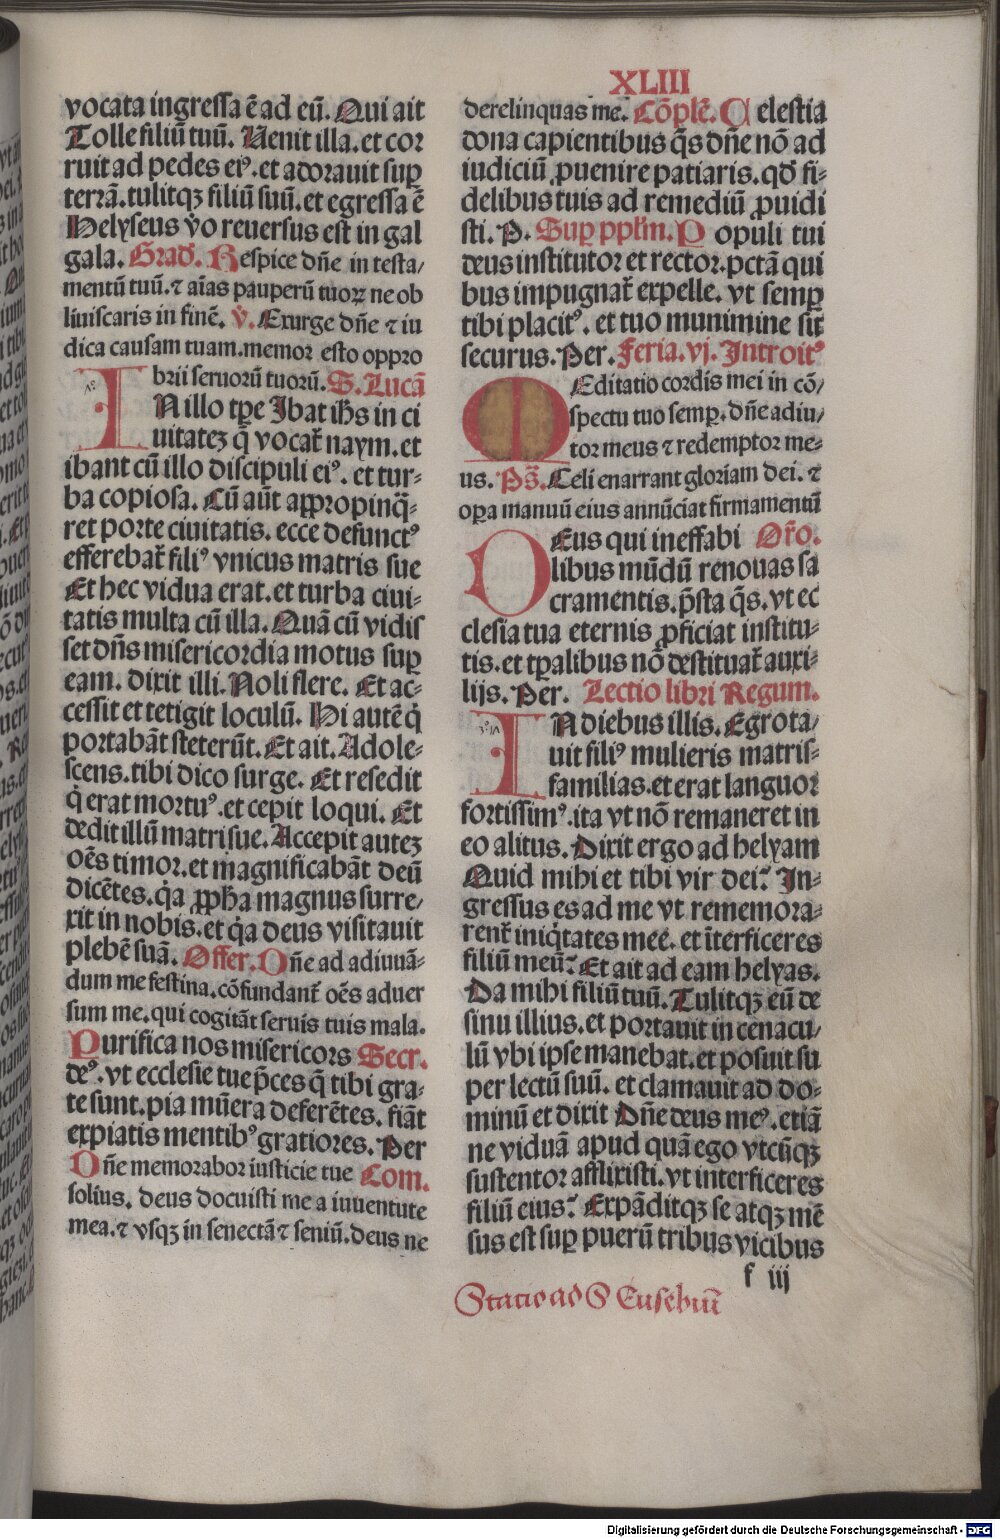 XLIII
vocata ingressa ē ad eū. Qui ait
Tolle filiū tuū. Uenit illa. et cor
ruit ad pedes eiꝰ. et adorauit suꝑ
terrā. tulitqꝫ filiū suū. et egressa ē
Helyseus v̇o reuersus est in gal
gala. Grad̛. Respice dn̄e in testa/
mentū tuū. ⁊ aīas pauperū tuoꝝ ne ob
liuiscaris in finē. v̇. Exurge dn̄e ⁊ iu
dica causam tuam. memor esto oppro
brii seruorū tuorū. S. Lucā
IN illo tꝑe Ibat ih̄s in ci
uitateꝫ q̄ vocat̄ naym. et
ibant cū illo discipuli eiꝰ. et tur⸗
ba copiosa. Cū aūt aꝓpropinq̄⸗
ret porte ciuitatis. ecce defunctꝰ
efferebat̄ filiꝰ vnicus matris sue
Et hec vidua erat. et turba ciui⸗
tatis multa cū illa. Quā cū vidis
set dn̄s misericordia motus suꝑ
eam. dixit illi. Noli flere. Et ac⸗
cessit et tetigit loculū. Hi autē q̇
portabāt steterūt. Et ait. Adole⸗
scens. tibi dico surge. Et resedit
q̇ erat mortuꝰ. et cepit loqui. Et
dedit illū matri sue. Accepit auteꝫ
oēs timor. et magnificabāt deū
dicētes. q̇a ꝓpḣa magnus surre/
xit in nobis. et q̇a deus visitauit
plebē suā. Offer. Dn̄e ad adiuuā⸗
dum me festina. cōfundant̄ oēs aduer
sum me. qui cogitāt seruis tuis mala.
Purifica nos misericors Secr.
deꝰ. vt ecclesie tue p̄ces q̄ tibi gra⸗
te sunt. pia mūera deferētes. fiāt
expiatis mentibꝰ gratiores. Per
Dn̄e memorabor iusticie tue Com.
solius. deus docuisti me a iuuentute
mea. ⁊ vsqꝫ in senectā ⁊ seniū. deus ne
derelinquas me. Cōplē. Celestia
dona capientibus q̄s dn̄e nō ad
iudiciū ꝓuenire patiaris. qd̛ fi⸗
delibus tuis ad remediū ꝓuidi
sti. P. Suꝑ pplm̄. Populi tui
deus institutor et rector. pctā qui
bus impugnat̄ expelle. vt semꝑ
tibi placitꝰ. et tuo munimine sit
securus. Per. Feria. vj. Introitꝰ
MEditatio cordis mei in cō/
spectu tuo semꝑ. dn̄e adiu/
tor meus ⁊ redemptor me⸗
us. Ps̄. Celi enarrant gloriam dei. ⁊
oꝑa manuū eius annūciat firmamentū
DEus qui ineffabi Or̄o.
libus mūdū renouas sa
cramentis. p̄sta q̄s. vt ec
clesia tua eternis ꝓficiat institu⸗
tis. et tꝑalibus nō destituat̄ auxi⸗
lijs. Per. Lectio libri Regum.
IN diebus illis. Egrota/
uit filiꝰ mulieris matris⸗
familias. et erat languor
fortissimꝰ. ita vt nō remaneret in
eo alitus. Dixit ergo ad helyam
Quid mihi et tibi vir dei? In⸗
gressus es ad me vt rememora⸗
rent̄ iniq̇tates mee. et īterficeres
filiū meū? Et ait ad eam helyas.
Da mihi filiū tuū. Tulitqꝫ eū de
sinu illius. et portauit in cenacu/
lū vbi ipse manebat. et posuit su
per lectū suū. et clamauit ad do⸗
minū et dixit Dn̄e deus meꝰ. etiā
ne viduā apud quā ego vtcūqꝫ
sustentor afflixisti. vt interficeres
filiū eius? Expāditqꝫ se atqꝫ mē
sus est suꝑ puerū tribus vicibus
f iij
Statio ad S Eusebiū
Digitalisierung gefördert durch die Deutsche Forschungsgemeinschaft - DFG